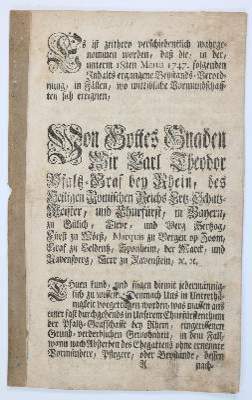 Es ist zeithero verschiedentlich wahrge-
nommen worden, daß die, in der,
unterm 18ten Martii 1747. folgenden
Inhalts ergangene Beystands-Verord-
nung, in Fällen, wo würckliche Vormundschaff-
ten sich ereignen,
Von Gottes Gnaden
Wir Carl Theodor
Pfaltz-Graf bey Rhein, des
Heiligen Römischen Reichs Ertz-Schatz-
Meister, und Churfürst, in Bayern,
zu Gülich, Cleve, und Berg Hertzog,
Fürst zu Mörß, Marquis zu Bergen op Zoom,
Graf zu Veldentz, Sponheim, der Marck, und
Ravensberg, Herr zu Ravenstein, ꝛc. ꝛc.
Thuen kund, und fügen hiemit jedermännig-
lich zu wissen. Demnach Uns in Unterthä-
nigkeit vorgetragen worden, was massen aus
einer fast durchgehends in Unserem Churfürstenthum
der Pfaltz-Graffschafft bey Rhein, eingerissenen
Grund-verderblichen Gewohnheit, in dem Fall,
wann nach Absterben des Ehegattens ohne ernennte
Vormündere, Pflegere, oder Beystände, dessen
A nach-